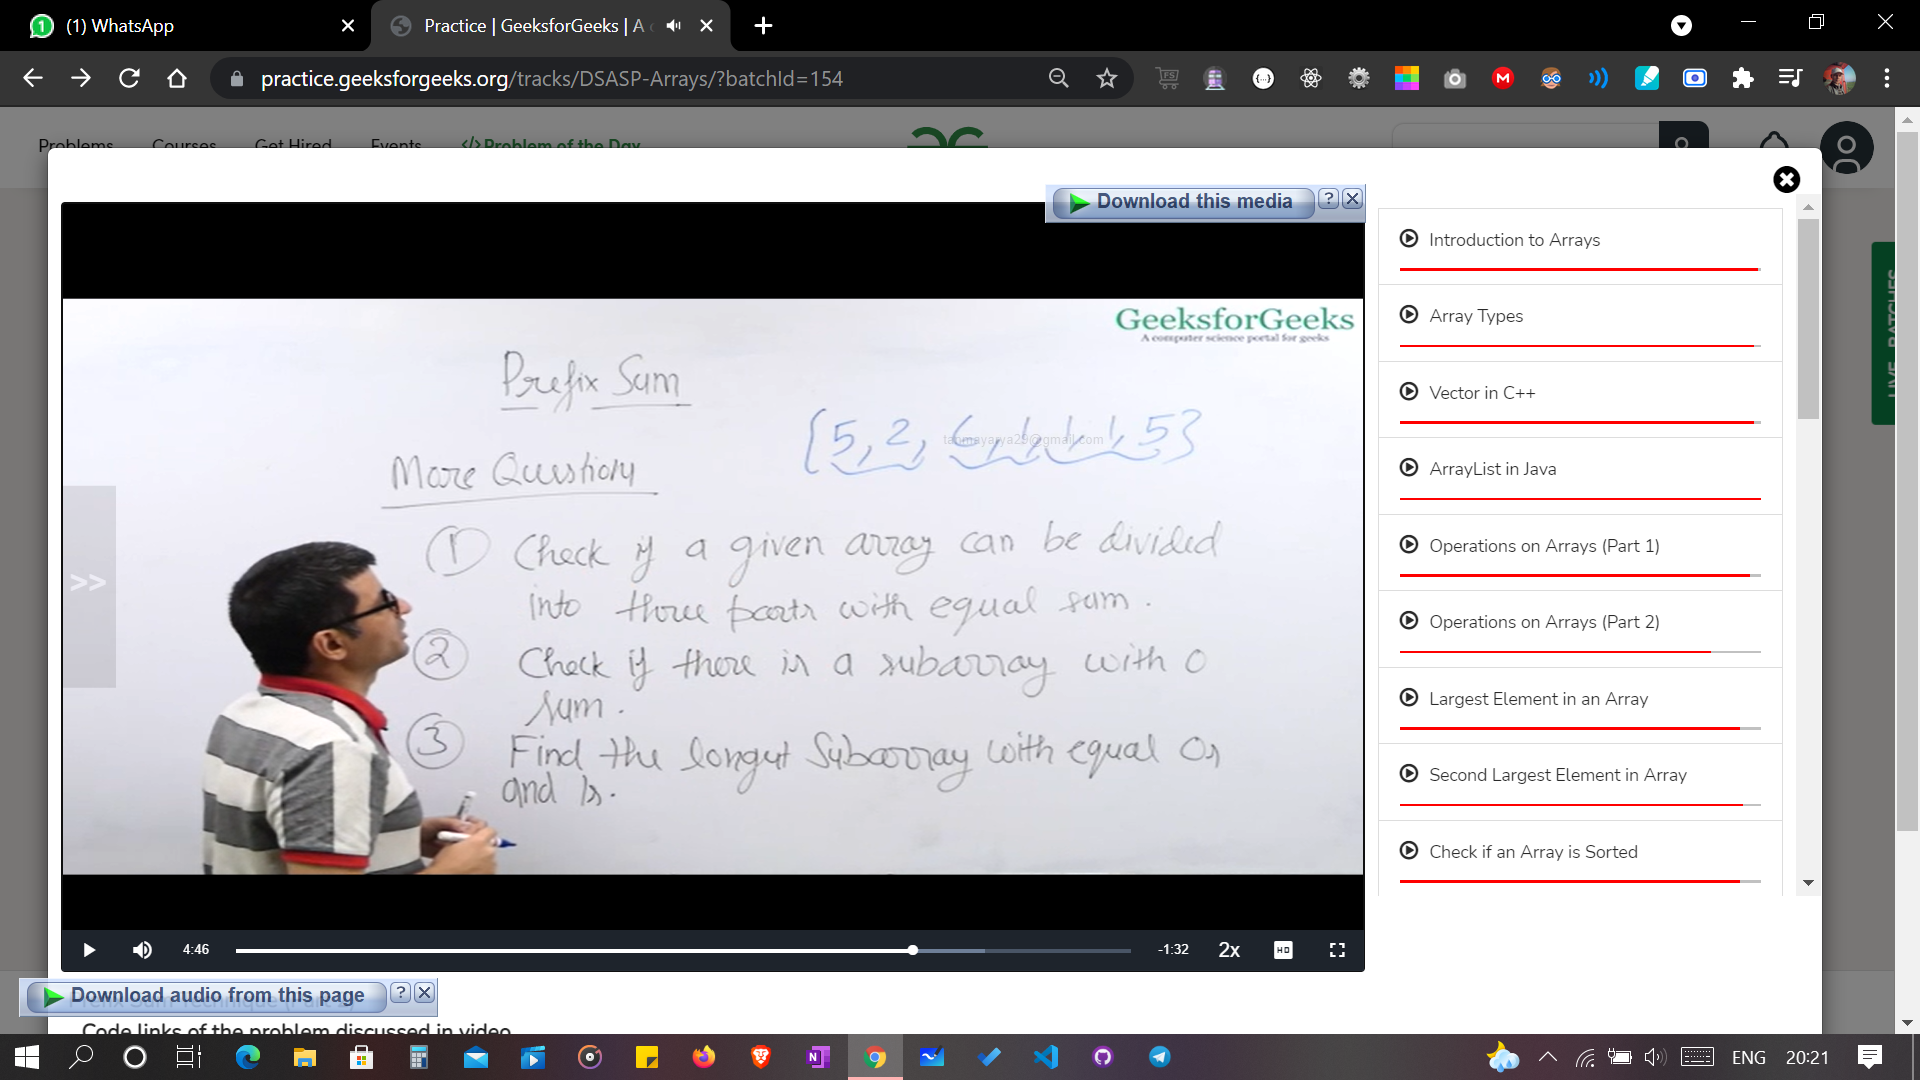 (1) WhatsApp
Practice | GeeksforGeeks | A
practice.geeksforgeeks.org/tracks/DSASP-Arrays/?batchId=154
Problems Courses Get Hired Events </> Problem of the Day
Download this media ?
GeeksforGeeks
A computer science portal for geeks
Prefix Sum
{5, 2, 6, 1, 1, 1, 5}
tanmayarya29@gmail.com
More Questions
① Check if a given array can be divided
into three parts with equal sum.
② Check if there is a subarray with 0
sum.
③ Find the longest Subarray with equal 0s
and 1s.
>>
4:46 -1:32 2x HD
Introduction to Arrays
Array Types
Vector in C++
ArrayList in Java
Operations on Arrays (Part 1)
Operations on Arrays (Part 2)
Largest Element in an Array
Second Largest Element in Array
Check if an Array is Sorted
LIVE BATCHES
Download audio from this page ?
Code links of the problem discussed in video
ENG 20:21